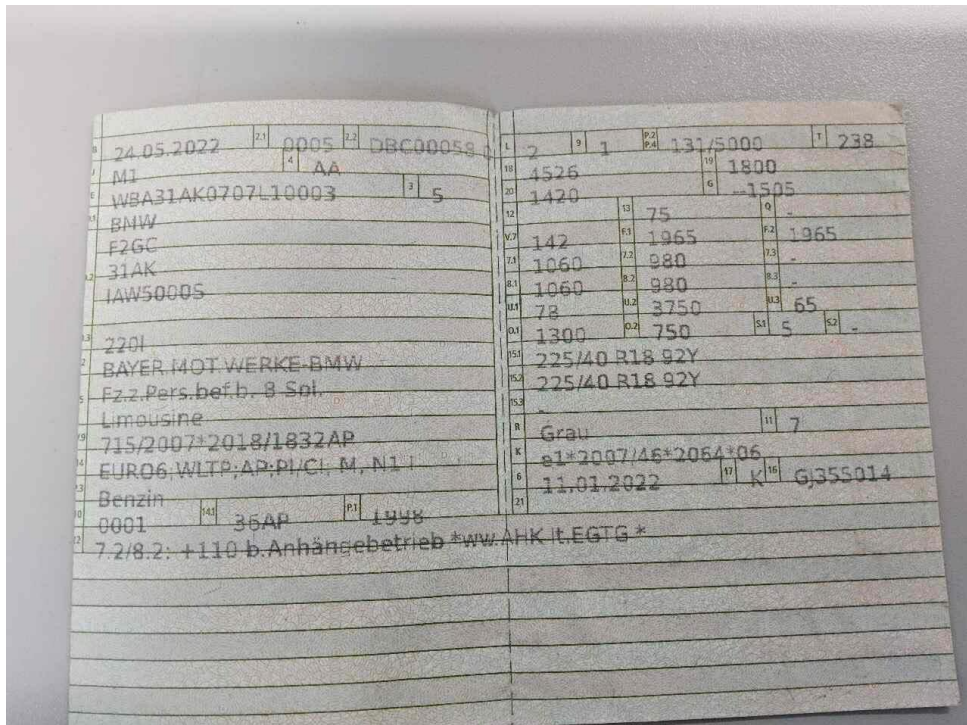 B 24.05.2022 2.1 0005 2.2 DBC00058
J M1 4 AA
E WBA31AK0707L10003 3 5
D.1 BMW
F2GC
D.2 31AK
IAW5000S
D.3 220I
2 BAYER.MOT.WERKE-BMW
5 Fz.z.Pers.bef.b. 8 Spl.
Limousine
V.9 715/2007*2018/1832AP
14 EURO6;WLTP;AP;PI/CI, M, N1 I
P.3 Benzin
10 0001 14.1 36AP P.1 1998
22 7.2/8.2: +110 b.Anhängebetrieb *ww.AHK lt.EGTG *
L 2 9 1 P.2 P.4 131/5000 T 238
18 4526 19 1800
20 1420 G --1505
12 13 75 Q -
V.7 142 F.1 1965 F.2 1965
7.1 1060 7.2 980 7.3 -
8.1 1060 8.2 980 8.3 -
U.1 78 U.2 3750 U.3 65
O.1 1300 O.2 750 S.1 5 S.2 -
15.1 225/40 R18 92Y
15.2 225/40 R18 92Y
15.3 -
R Grau 11 7
K e1*2007/46*2064*06
6 11.01.2022 17 K 16 GJ355014
21